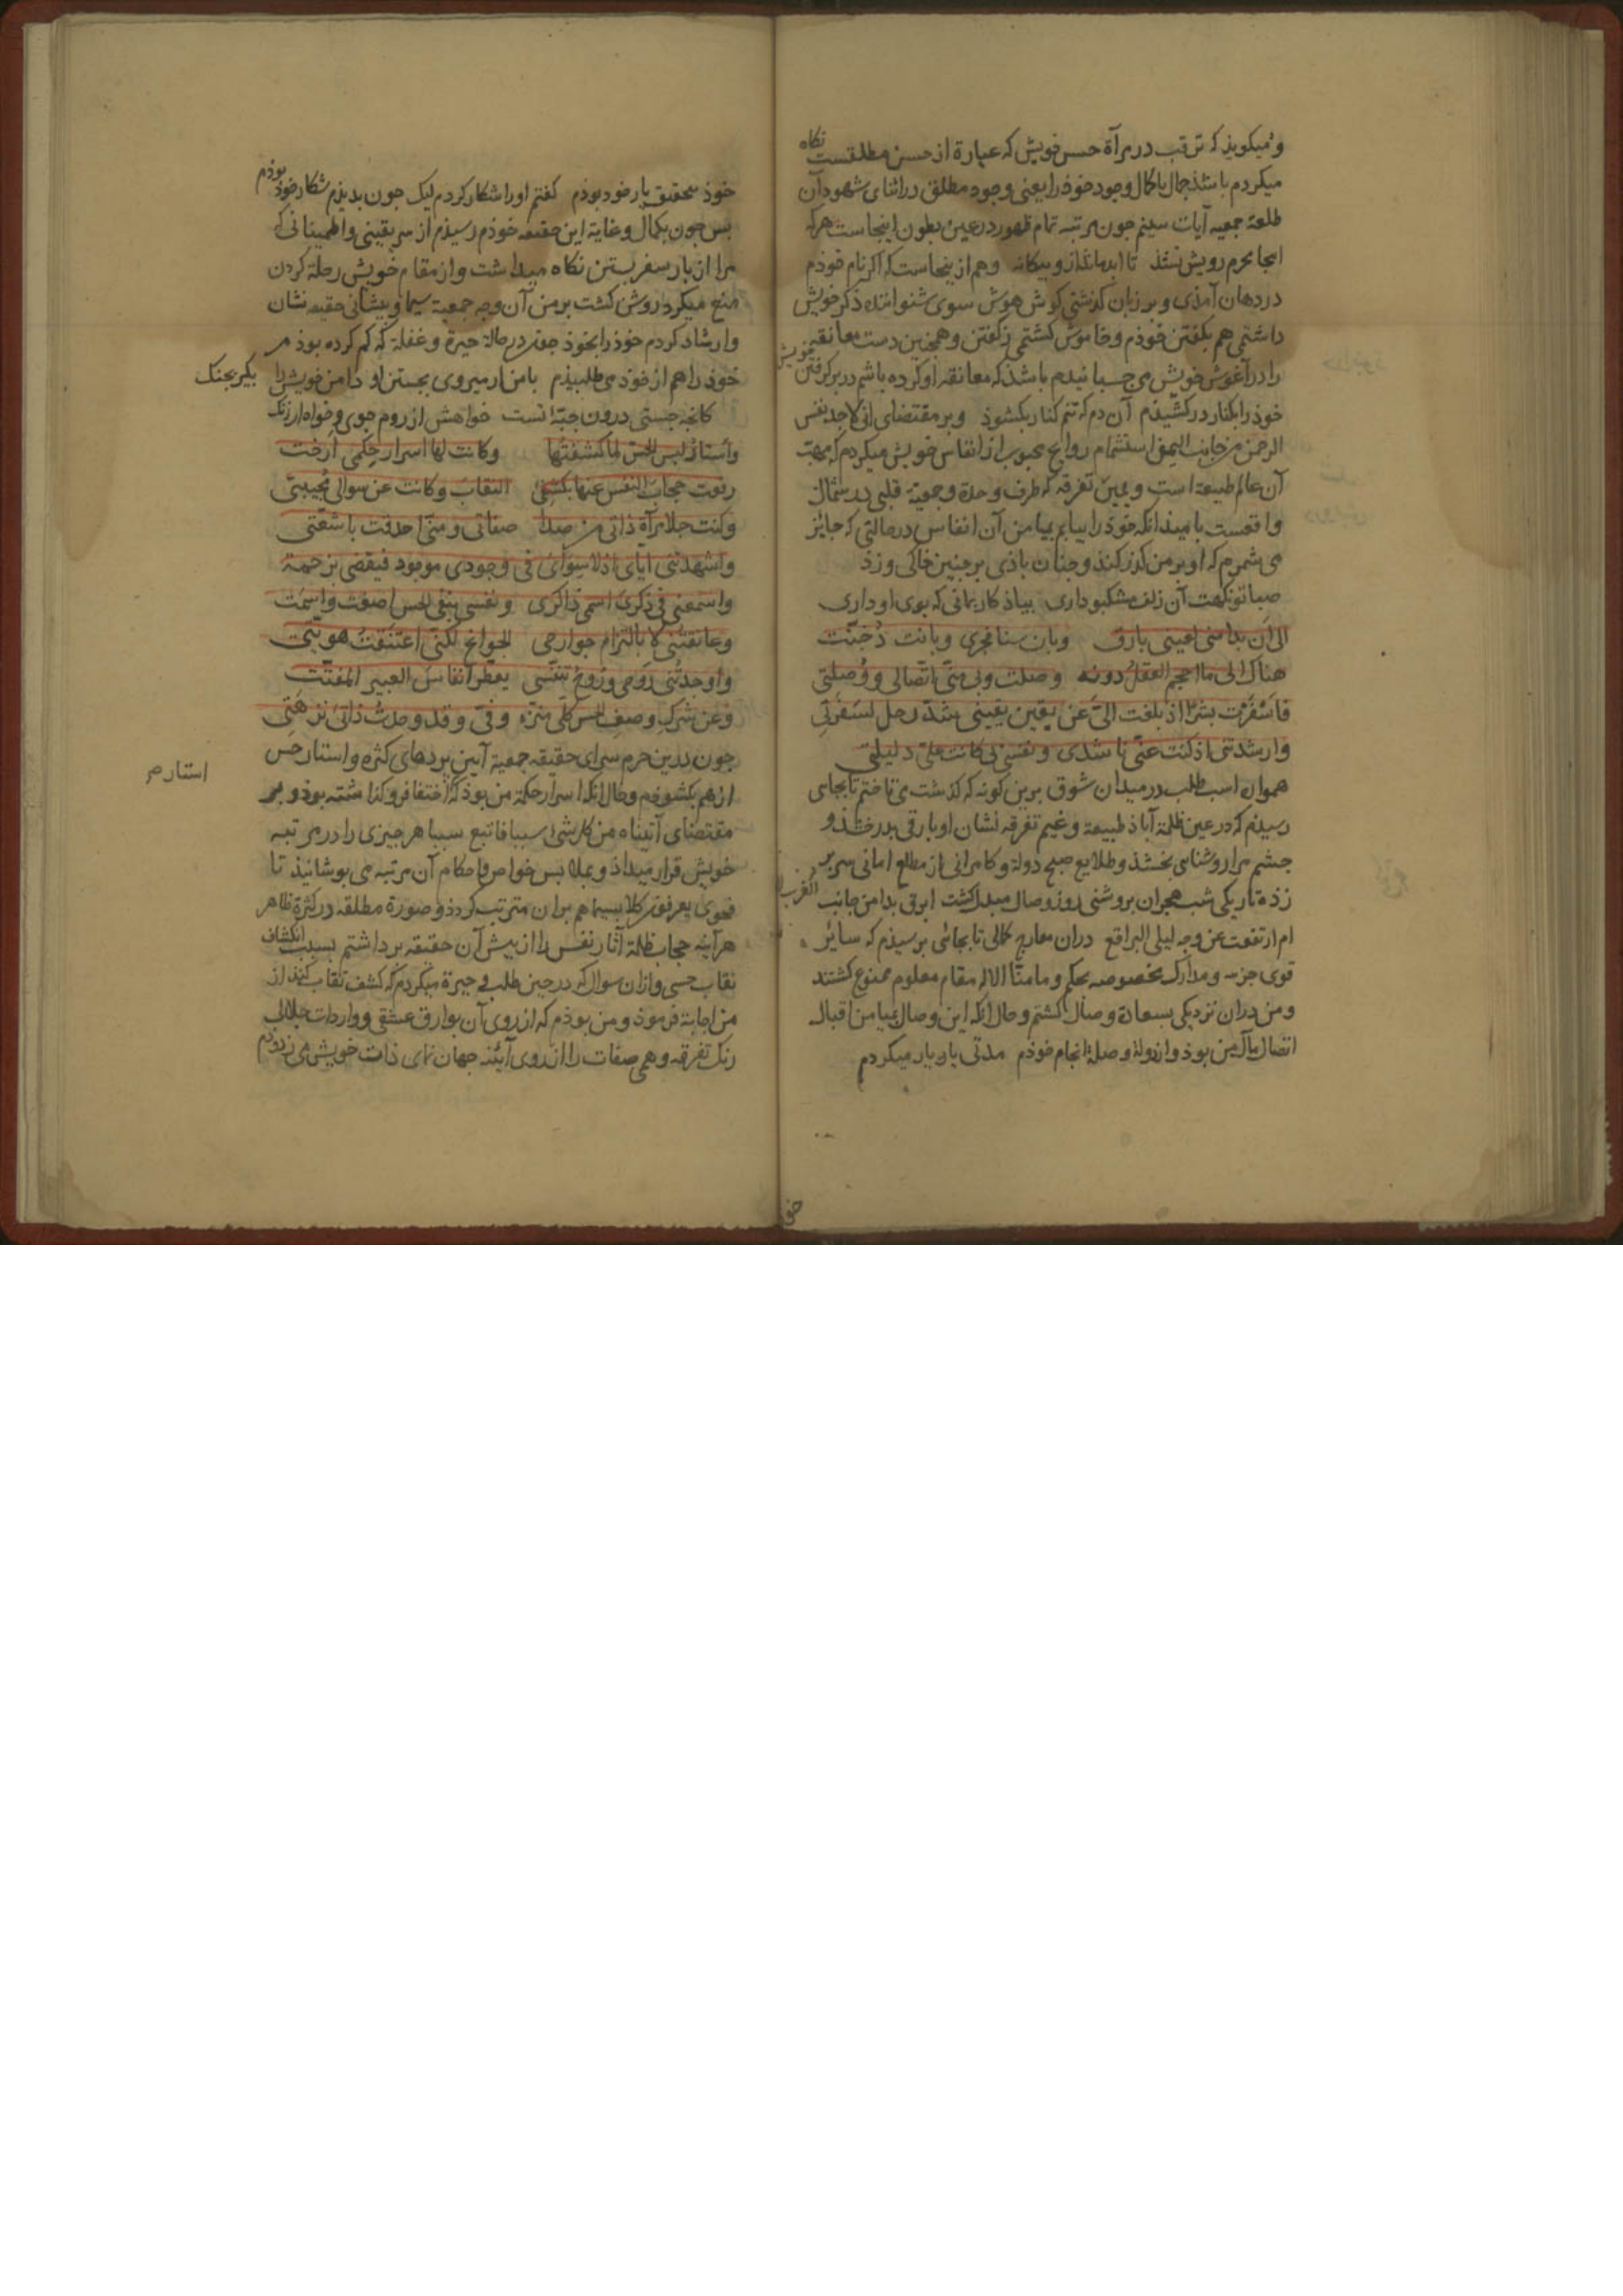 و میکوید که ترقب در مرآة حسن خویش که عبارة از حسن مطلقست نکاه
میکردم باشد جمال با کمال وجود خوذ را یعنی وجود مطلق در اثنای شهود آن
طلعة جمعیه آیات بینم جون مرتبه تمام ظهور در عین بطون اینجاست هرکه
اینجا محرم رویش نشذ تا ابد بماند از و بیکانه وهم ازینجاست که اکر نام خوذم
در دهان آمذی و بر زبان کذشتی کوش هوش سوی شنوانیذه ذکر خویش
داشتمی هم بکفتن خوذم و خاموش کشتمی ز کفتن و همجنین دست معانقه
را در آغوش خویش می جسبانیدم باشذ که معانقه او کرده باشم در بر کرفتن خویش
خوذ را بکنار در کشیذم آن دم که تنم کنار بکشوذ و بر مقتضای انی لاجد نفس
الرحمن من جانب الیمن استشمام روایح محبوب از انفاس خویش میکردم که مهب
آن عالم طبیعة است و یمین تفرقه که طرف وحدة وجمعیة قلبی در شمال
واقعست بامیذ انکه خوذ را بیابم بمیامن آن انفاس در حالتی که جایز
می شمرم که او بر من کذر کنذ و جنان باذی بر جنین خاکی وزذ
صبا تو نکهت آن زلف مشکبو داری بیاذ کار بمانی که بوی او داری
الی ان بدا منی لعینی بارق وبان سنا فجری وبانت دجنّت
هناک الی ما احجم العقل دونه وصلت وبی منی اتصالی ووصلتی
فاسفرت بشرا اذ بلغت الیّ عن یقین یقینی شدّ رحل لسفرتی
وارشدتنی اذ کنت عنی ناشدی ونفسی بی کانت علیّ دلیلتی
همواره اسب طلب در میدان شوق برین کونه که کذشت می تاختم تا بجای
رسیذم که در عین ظلمة آباذ طبیعة و غیم تفرقه نشان او بارقی بدرخشذ و
جشم مرا روشنایی بخشذ و طلایع صبح دولة و کامرانی از مطلع امانی سر بر
زذه تاریکی شب هجران بروشنی روز وصال مبدل کشت ابرق بدا من جانب الغرب
ام ارتفعت عن وجه لیلی البراقع دران معارج کمالی تا بجائی برسیذم که سایر
قوی جزیه و مدارک مخصوصه بحکم وما منّا الا له مقام معلوم ممنوع کشتند
و من دران نزدیکی بسعادة وصال کشتم و حال انکه این وصال بمیامن اقبال
اتصال مآل من بوذ و از دولة وصلة انجام خوذم مدتی یار یار میکردم
خوذ بتحقیق یار خود بوذم کفتم اورا شکار کردم لیک جون بدیذم شکار خوذ بوذم
بس جون بکمال و غایة این حقیقه خوذم رسیذم از سر یقینی و اطمینانی که
مرا از بار سفر بستن نکاه میداشت و از مقام خویش رحلة کردن
منع میکرد روشن کشت بر من آن وجه جمعیة سیما و بیشانی حقیقه نشان
و ارشاد کردم خوذ را بخوذ جون در حالة حیرة و غفلة که کم کرده بوذم
خوذ را هم از خوذ می طلبیذم با من ار میروی بجستن او دامن خویش را بکیر بجنک
کانجه جستی درون جبّۀ تست خواهش از روم جوی و خواه از زنک
واستار لبس الحسّ لما کشفتها وکانت لها اسرار حکمی ارخت
رفعت حجاب النفس عنها بکشفی النقاب وکانت عن سوالی مجیبتی
وکنت جلا مرآة ذاتی من صدا صفاتی ومنی احدقت باشعّتی
واشهدتنی ایای اذ لا سوای فی وجودی موجود فیقضی بزحمة
واسمعنی فی ذکری اسمی ذاکری ونفسی بنفی الحس اصغت واسمت
وعانقتنی لا بالتزام جوارحی الجوانح لکنی اعتنقت هویّتی
واوجدتنی روحی وروح تنفّسی یعطّر انفاس العبیر المفتّت
وعن شرک وصف الحس کلی منزه وفیّ وقد وحدت ذاتی نزهتی
جون درین حرم سرای حقیقه جمعیة آیین بردهای کثرة و استار حس
استار م
از هم بکشوذم و حال انکه اسرار حکمة من بوذ که اختفا فروکذاشته بوذ و بر
مقتضای آتیناه من کل شیٔ سببا فاتبع سببا هر جیزی را در مرتبه
خویش قرار میداذ و بملابس خواص و احکام آن مرتبه می بوشانیذ تا
فحوی یعرفون کلا بسیماهم بران مترتب کردذ و صورة مطلقه در کثرة ظاهر
هر آینه حجاب ظلمة آثار نفس را از بیش آن حقیقه برداشتم بسبب انکشاف
نقاب حسی و ازان سوال که در حین طلب و حیرة میکردم که کشف نقاب کنذ از
من اجابة فرموذ و من بوذم که از روی آن بوارق عشقی و واردات جلالی
رنک تفرقه و همی صفات را از روی آئینه جهان نمای ذات خویش می زدوذم